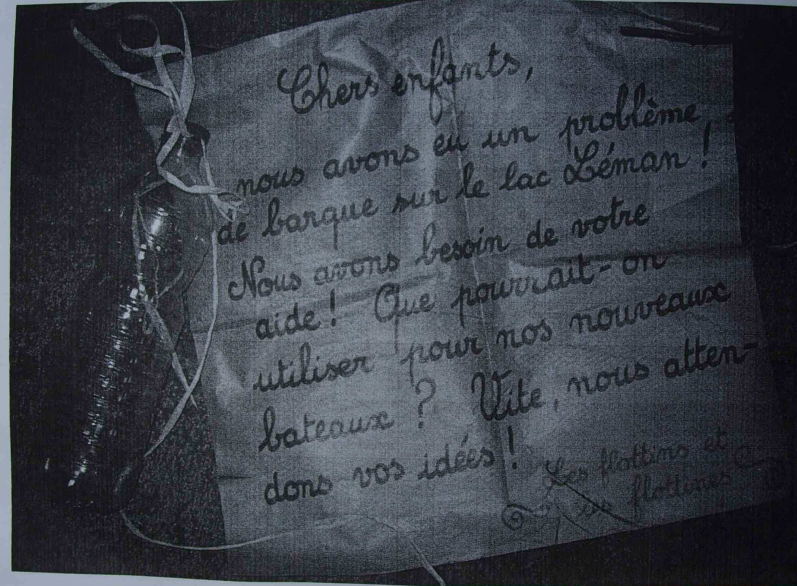 Chers enfants,
nous avons eu un problème
de barque sur le lac Léman !
Nous avons besoin de votre
aide ! Que pourrait-on
utiliser pour nos nouveaux
bateaux ? Vite, nous atten-
dons vos idées !
Les flottins et
les flottines